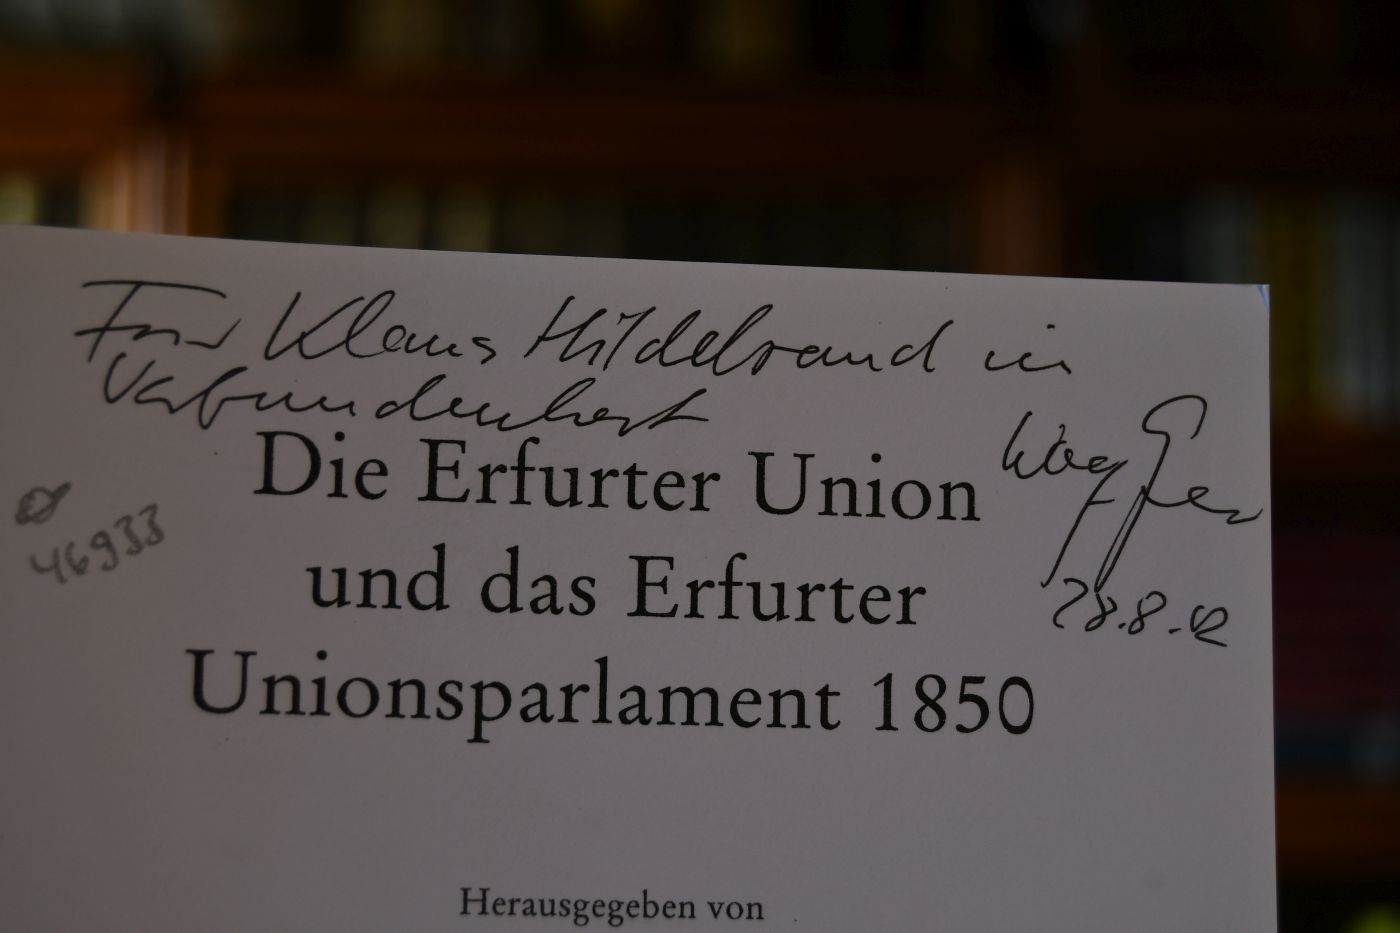 Für Klaus Hildebrand in
Verbundenheit
Die Erfurter Union
und das Erfurter
Unionsparlament 1850
28.8.02
46933
Herausgegeben von